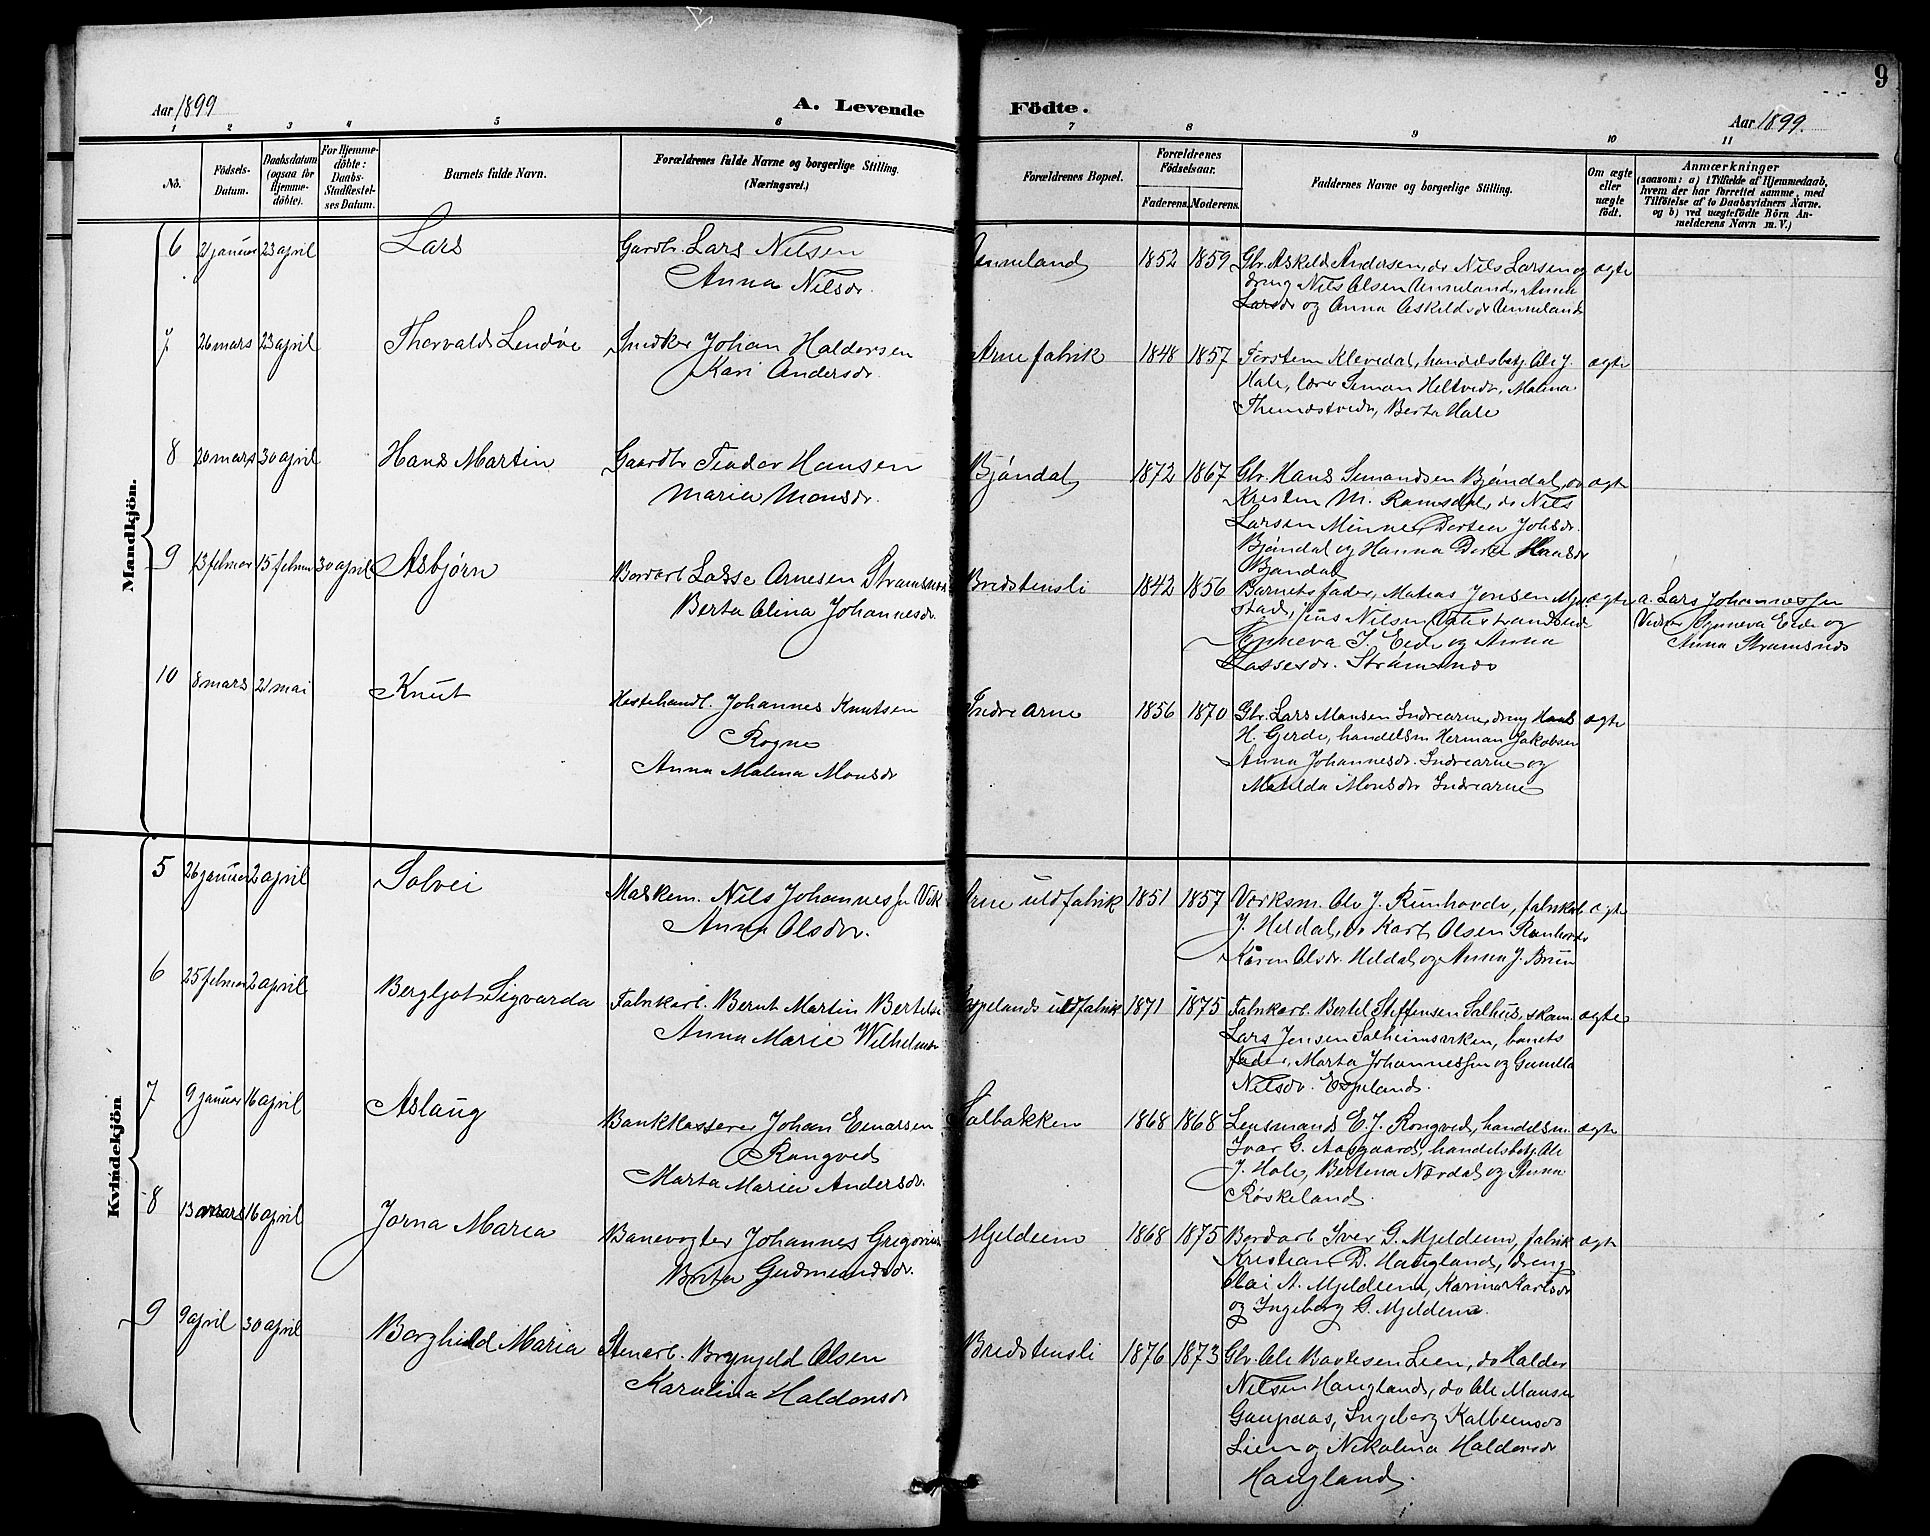 9
Aar 1899 A. Levende Födte. Aar 1899.
1 2 3 4 5 6 7 8 9 10 11
No.
Födsels-
Datum.
Daabsdatum
(ogsaa för
Hjemme-
döbte).
For Hjemme-
döbte:
Daabs-
Stadfæstel-
ses Datum.
Barnets fulde Navn.
Forældrenes fulde Navne og borgerlige Stilling.
(Næringsvei.)
Forældrenes Bopæl.
Forældrenes
Födselsaar.
Faderens. Moderens.
Faddernes Navne og borgerlige Stilling.
Om ægte
eller
uægte
født.
Anmærkninger
(saasom: a) i Tilfælde af Hjemmedaab,
hvem der har forrettet samme, med
Tilföielse af to Daabsvidners Navne.
og b) ved uægtefödte Börn An-
melderens Navn m. V.)
Mandkjön.
6 21 januar 23 april Lars Gardbr. Lars Nilsen
Anna Nilsdr.
Unneland 1852 1859 Gbr. Askild Andersen, do Nils Larsen og ægte
dreng Nils Olsen Unneland, Anna
Larsdr og Anna Askildsdr Unneland
7 26 mars 23 april Thorvald Lendve Snedker Johan Haldersen
Kari Andersdr.
Arne fabrik 1848 1857 Torstein Klevedal, handelsbetj. Ole J. ægte
Hole, lærer Simon Heltvedt, Malina
Berta Hole
8 20 mars 30 april Hans Martin Gaardbr Teodor Hansen
Maria Monsdr.
Bjöndal 1872 1867 Gbr. Hans Simondsen Bjöndal, do ægte
Kristen M. Ramsdal, do Nils
Larsen Minne, Dortea Johsdr.
Bjöndal og Hanna Dortea Hansdr
Bjöndal
9 13 februar 15 februar 30 april Asbjørn Bordarb Lasse Arnesen Stramsnes
Berta Olina Johannesdr.
Bredstensli 1842 1856 Barnets fader, Matias Jonsen Mjel- ægte a. Lars Johannessen
stad, Jens Nilsen
Synneva J. Eide og Anna
Lassesdr. Strømsnes
Vidner Synneva Eide og
Anna Stramsnes
10 8 mars 21 mai Knut Hestehandl. Johannes Knutsen
Rogne
Anna Malina Monsdr
Indre Arne 1856 1870 Gbr. Lars Monsen Indrearne, dreng Hans ægte
H. Gjerde, handelsm Herman Jakobsen
Anna Johannesdr. Indrearne og
Matilda Monsdr Indrearne
Kvindekjön
5 26 januar 2 april Solvei Maskinm. Nils Johannessen Vik
Anna Olsdr.
Arne uldfabrik 1851 1857 Verksm. Ole J. Runhovde, fabrikarb ægte
J. Heldal, do Karl Olsen Ronhovde
Karen Olsdr. Heldal og Anna J. Brun
6 25 februar 2 april Bergljot Sigvarda Fabrikarb. Bernt Martin Bertelsen
Anna Marie Wilhelmsdr
Espelands uldfabrik 1871 1875 Fabrikarb. Bertel Steffensen Salhus, skom. ægte
Lars Jensen Solheimsviken, barnets
fader, Marta Johannessen og Gunilla
Nilsdr. Espeland.
7 9 januar 16 april Aslaug Bankkasserer Johan Einarsen
Rongved
Marta Maria Andersdr.
Solbakken 1868 1868 Lensmand E. J. Rongved, handelsm. ægte
Ivar G. Aasgaard, handelsbetj. Ole
J. Hole, Bertina Nærdal og Anna
Røskeland.
8 13 mars 16 april Jorna Maria Banevogter Johannes Gregorius
Brita Gudmundsdr.
Mjeldeim 1868 1875 Bordarb Iver G. Mjeldeim, fabrik ægte
Kristian D. Haugland, dreng
Olai A. Mjeldeim, Karina Karlsdr
og Ingeborg G. Mjeldeim.
9 9 april 30 april Borghild Maria Stenarb. Brynjeld Olsen
Karolina Haldorsdr
Bredstensli 1876 1873 Gbr. Ole Bortesen Lien, do Haldor
Nilsen Haugland, do Ole Monsen
Gaupaas, Ingeborg Kolbeinsdr
Lien og Nikolina Haldorsdr
Haugland.